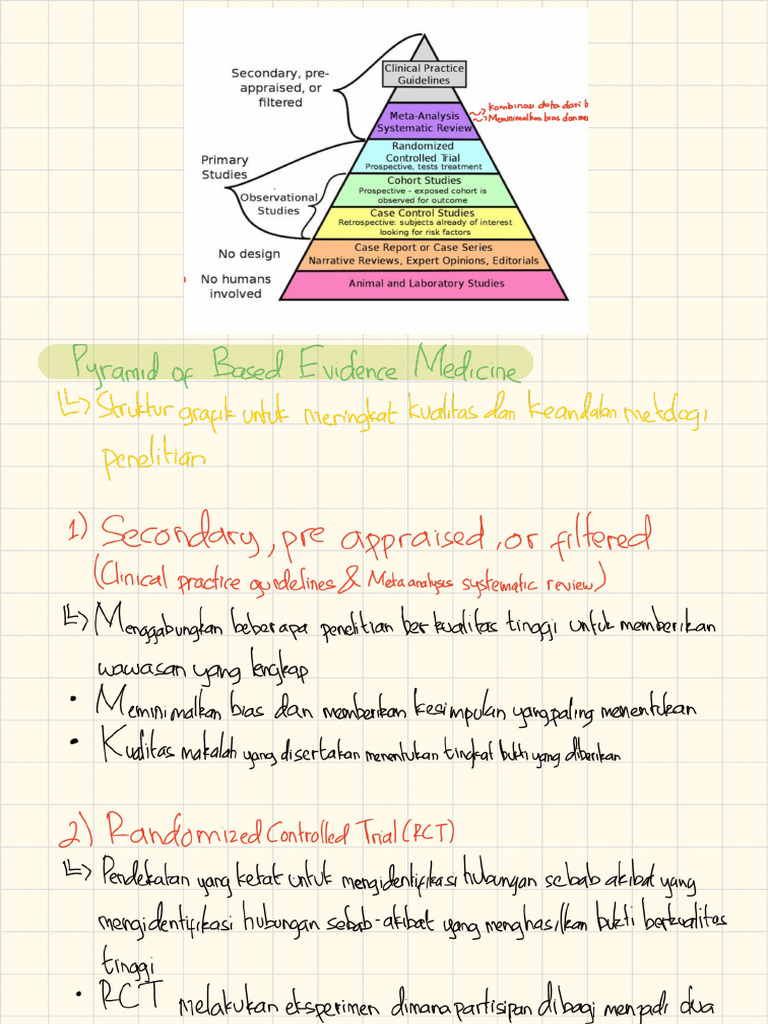 Clinical Practice
Guidelines
Secondary, pre-
appraised, or
filtered
Meta-Analysis
Systematic Review
kombinasi data dari b
Meminimalkan bias dan me
Randomized
Controlled Trial
Prospective, tests treatment
Primary
Studies
Observational
Studies
Cohort Studies
Prospective - exposed cohort is
observed for outcome
Case Control Studies
Retrospective: subjects already of interest
looking for risk factors
No design
Case Report or Case Series
Narrative Reviews, Expert Opinions, Editorials
No humans
involved
Animal and Laboratory Studies
Pyramid of Based Evidence Medicine
Struktur grafik untuk meringkat kualitas dan keandalan metdogi
penelitian
1) Secondary, pre appraised, or filtered
(Clinical practice guidelines & Meta analysis systematic review)
Menggabungkan beberapa penelitian berkualitas tinggi untuk memberikan
wawasan yang lengkap
• Meminimalkan bias dan memberikan kesimpulan yang paling menentukan
• Kualitas makalah yang disertakan menentukan tingkat bukti yang diberikan
2) Randomized Controlled Trial (RCT)
Pendekatan yang ketat untuk mengidentifikasi hubungan sebab akibat yang
mengidentifikasi hubungan sebab-akibat yang menghasilkan bukti berkualitas
tinggi
• RCT melakukan eksperimen dimana partisipan dibagi menjadi dua